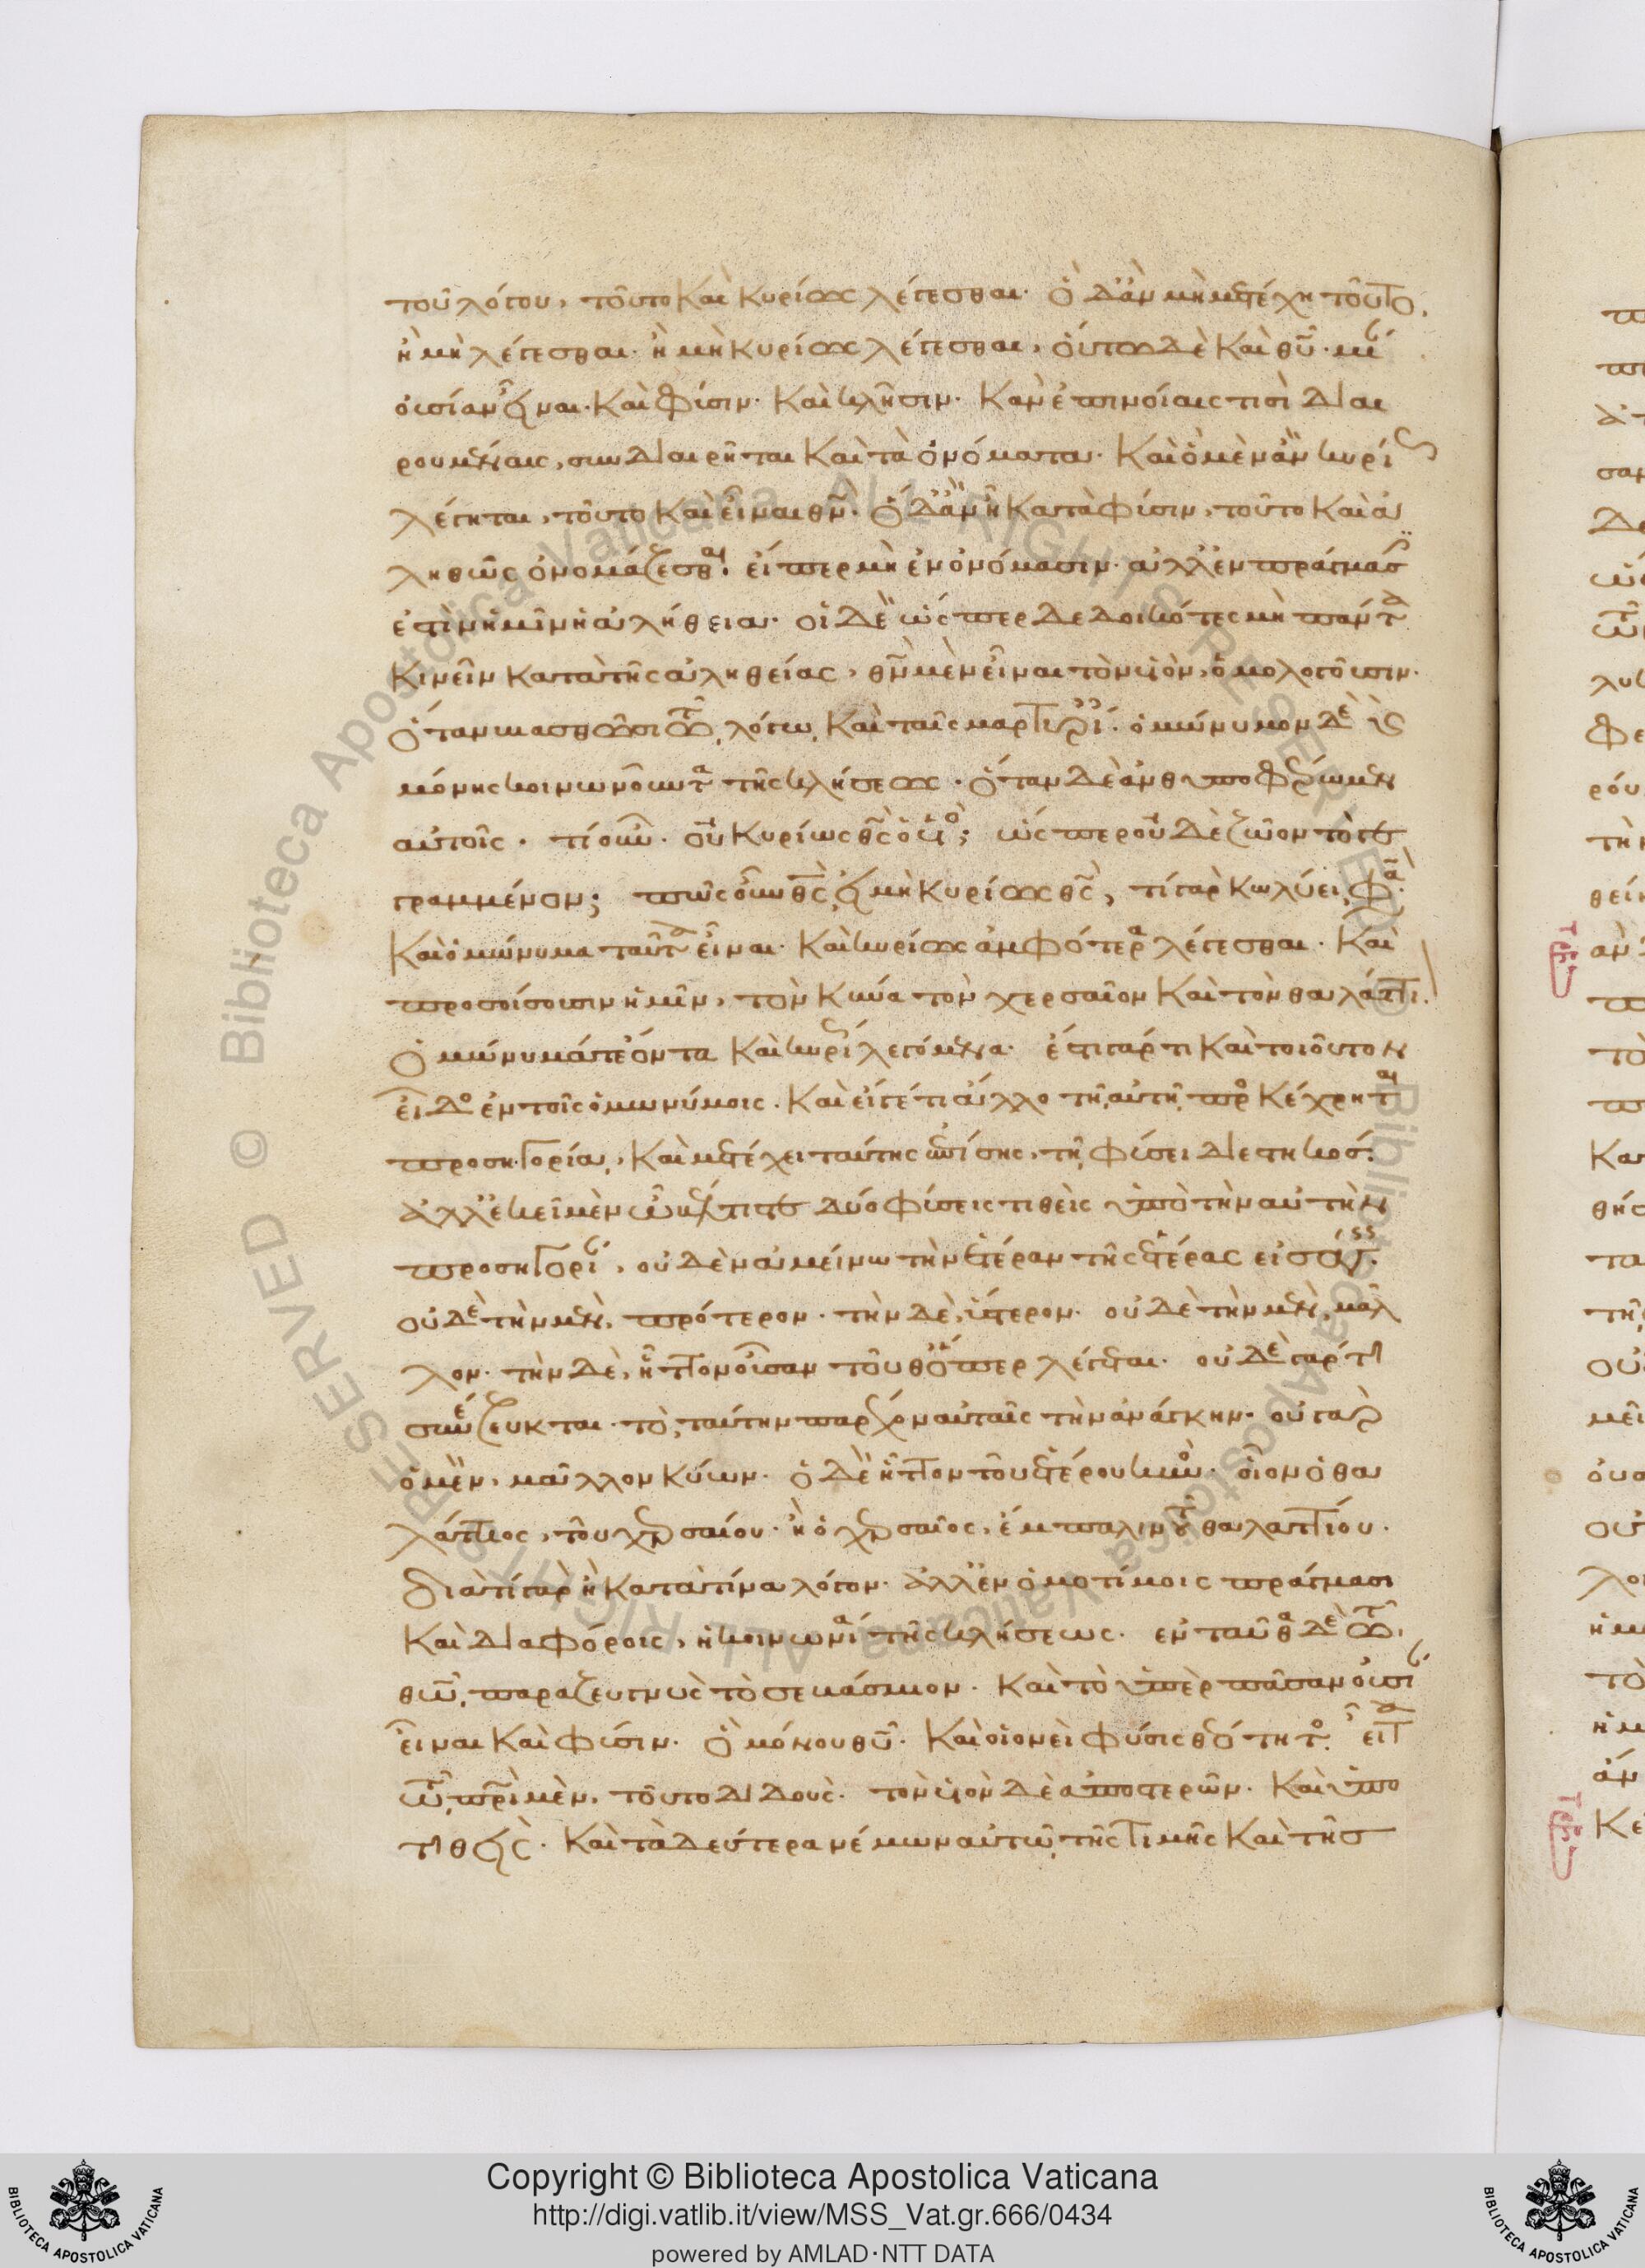 τοῦ λόγου, τοῦτο καὶ κυρίως λέγεσθαι· ὃ δ' ἂν μὴ μετέχη τούτου,
ἢ μὴ λέγεσθαι· ἢ μὴ κυρίως λέγεσθαι, οὕτω δὲ καὶ θῦ· μίαν
οὐσίαν εἶναι· καὶ φύσιν· καὶ κλῆσιν· κἂν ἐπινοίαις τισὶ διαι
ρουμέναις, συνδιαιρῆται καὶ τὰ ὀνόματα· καὶ ὃ μὲν ἂν κυρίως
λέγηται, τοῦτο καὶ εἶναι θν· ὃ δ' ἂν ἦ κατὰ φύσιν, τοῦτο καὶ ἀ
ληθῶς ὀνομάζεσθαι· εἴπερ μὴ ἐν ὀνόμασιν· ἀλλ' ἐν πράγμασίν
ἐστιν ἡμῖν ἡ ἀλήθεια· οἱ δὲ ὥσπερ δεδοικότες μὴ πάντα
κινεῖν κατὰ τῆς ἀληθείας, θν μὲν εἶναι τὸν υἱὸν, ὁμολογοῦσιν·
ὅταν βιασθῶσι τῷ λόγω, καὶ ταῖς μαρτυρίαις· ὁμώνυμον δὲ καὶ
μόνης κοινωνοῦντα τῆς κλήσεως· ὅταν δὲ ἀνθυποφέρωμεν
αὐτοῖς· τί οὖν· οὐ κυρίως θς ὁ υἱός; ὥσπερ οὐδὲ ζῶον τὸ γε
γραμμένον; πῶς οὖν θς, εἰ μὴ κυρίως θς, τί γὰρ κωλύει, φασὶ·
καὶ ὁμώνυμα ταῦτα εἶναι· καὶ κυρίως ἀμφότερα λέγεσθαι· καὶ
προσοίσουσιν ἡμῖν, τὸν κύνα τὸν χερσαῖον καὶ τὸν θαλάττιον·
ὁμώνυμά τε ὄντα καὶ κυρίως λεγόμενα· ἔστι γάρ τι καὶ τοιοῦτον
εἶδος ἐν τοῖς ὁμωνύμοις· καὶ εἴτε τι ἄλλο τῆ αὐτῆ προς κέχρηται
προσηγορία, καὶ μετέχει ταύτης ἐπίσης, τῆ φύσει διεστηκός·
ἀλλ' ἐκεῖ μὲν ὦ βέλτιστε δύο φύσεις τιθεὶς ὑπὸ τὴν αὐτὴν
προσηγορίαν, οὐδὲν ἀμείνω τὴν ἑτέραν τῆς ἑτέρας εἰσάγεις·
οὐδὲ τὴν μὲν, πρότερον· τὴν δὲ, ὕστερον· οὐδὲ τὴν μὲν, μᾶλ
λον· τὴν δὲ, ἧττον οὖσαν τοῦθ' ὅπερ λέγεται· οὐδὲ γάρ τι
συνέζευκται· τὸ, ταύτην παρέχον αὐταῖς τὴν ἀνάγκην· οὐ γὰρ
ὁ μὲν, μᾶλλον κύων· ὁ δὲ ἧττον τοῦ ἑτέρου κυνός· οἷον ὁ θα
λάττιος, τοῦ χερσαίου· ἢ ὁ χερσαῖος, ἔμπαλιν τοῦ θαλαττίου·
διατί γὰρ ἢ κατὰ τίνα λόγον· ἀλλ' ἐν ὁμοτίμοις πράγμασι
καὶ διαφόροις, ἡ κοινωνία τῆς κλήσεως· ἐνταῦθα δὲ τῶ
θῶ, παραζευγνὺς τὸ σεβάσμιον· καὶ τὸ ὑπὲρ πᾶσαν οὐσίαν
εἶναι καὶ φύσιν· ὃ μόνου θῦ· καὶ οἱονεὶ φύσις θεότητος· εἶτα
τῶ πρὶ μὲν, τοῦτο διδοὺς· τὸν υἱὸν δὲ ἀποστερῶν· καὶ ὑπο
τιθεὶς· καὶ τὰ δεύτερα νέμων αὐτῶ, τῆς τιμῆς καὶ τῆς
Copyright © Biblioteca Apostolica Vaticana
http://digi.vatlib.it/view/MSS_Vat.gr.666/0434
powered by AMLAD·NTT DATA